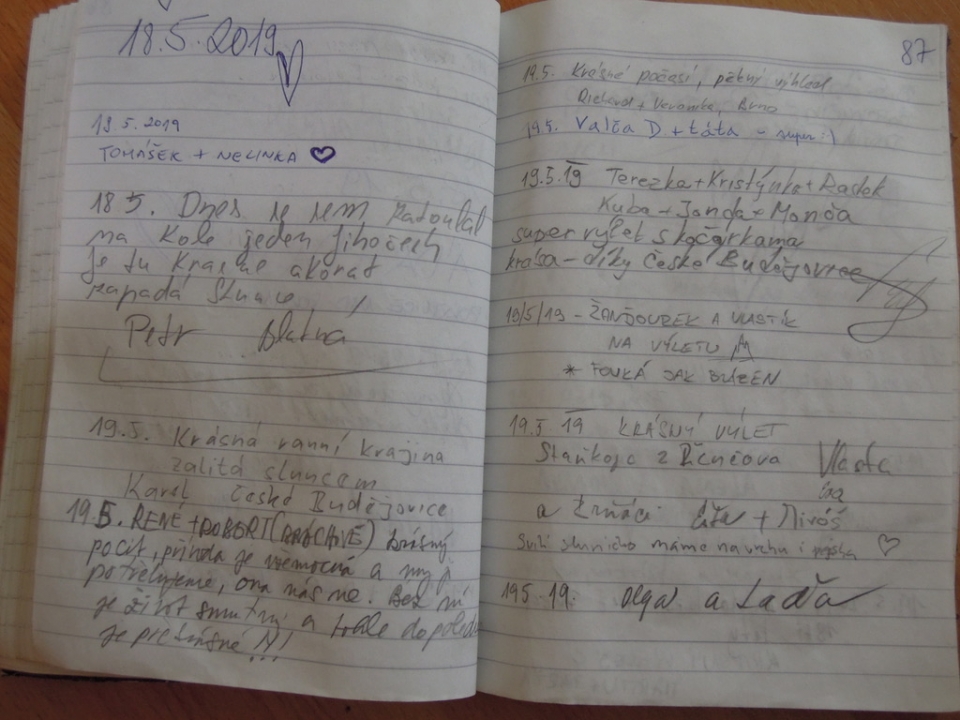 18.5.2019
19.5.2019
TOMÁŠEK + NELINKA
18 5. Dnes se sem zatoulal
na kole jeden Jihočech
je tu krásně akorát
zapadá slunce
Petr Blatná
19.5. Krásná ranní krajina
zalitá sluncem
Karel České Budějovice
19.5. RENÉ + ROBERT krásný
pocit, příroda je všemocná a my ji
potřebujeme, ona nás ne. Bez ní
je život smutný a tohle dopoledne
je překrásné !!!
87
19.5. Krásné počasí, pěkný výhled
Richard + Veronika, Brno
19.5. Valča D + táta - super :)
19.5.19 Terezka + Kristýnka + Radek
Kuba + Jonda + Monča
super výlet s kočárkama
krása - díky České Budějovice
19/5/19 - ŽANDOUREK A VLASTÍK
NA VÝLETU
* FOUKÁ JAK BLÁZEN
19.5 19 KRÁSNÝ VÝLET
Staňkoje z Vlasta
a
sluníčko máme na vrchu i
19.5.19. Olga a Laďa